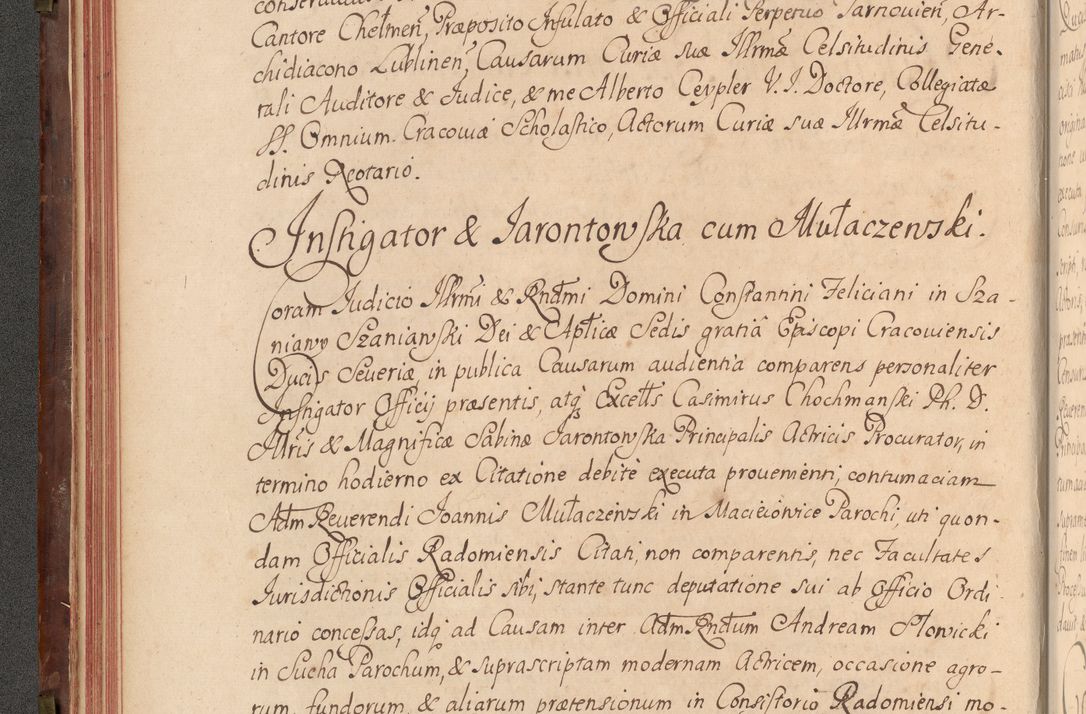 Cantore Chełmeñ, Præposito Infulato & Officiali Perpetuo Tarnovieñ, Ar-
chidiacono Lublineñ, Causarum Curiæ suæ Illrmæ Celsitudinis Gene-
rali Auditore & Judice, & me Alberto Ceypler V. J. Doctore, Collegiatæ
SS. Omnium Cracoviæ Scholastico, Actorum Curiæ suæ Illrmæ Celsitu-
dinis Notario.
Instigator & Jarontowska cum Mułaczewski.
Coram Judicio Illrmi & Rndmi Domini Constantini Feliciani in Sza-
niawy Szaniawski Dei & Aplicæ Sedis gratiâ Episcopi Cracoviensis
Ducis Severiæ, in publica Causarum audientia comparens personaliter
Instigator Officij præsentis, atq Excells Casimirus Chochmanski Ph. D.
Illris & Magnificæ Sabinæ Jarontowska Principalis Actricis Procurator, in
termino hodierno ex Citatione debitè executa provenienti, contumaciam
Adm Reverendi Joannis Mułaczewski in Macieiowice Parochi, uti quon-
dam Officialis Radomiensis Citati, non comparentis, nec Facultates
Jurisdictionis Officialis sibi, stante tunc deputatione sui ab Officio Ordi
nario concessas, idq ad Causam inter Adm. Rndum Andream Słowicki
in Sucha Parochum, & suprascriptam modernam Actricem, occasione agro-
rum, fundorum, & aliarum prætensionum in Consistorio Radomiensi mo-